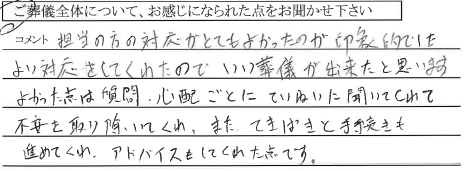 ご葬儀全体について、お感じになられた点をお聞かせ下さい
コメント 担当の方の対応がとてもよかったのが印象的でした
よい対応をしてくれたので いい葬儀が出来たと思います
よかった点は質問・心配ごとにていねいに聞いてくれて
不安を取り除いてくれ、また てきぱきと手続きも
進めてくれ、アドバイスもしてくれた点です。